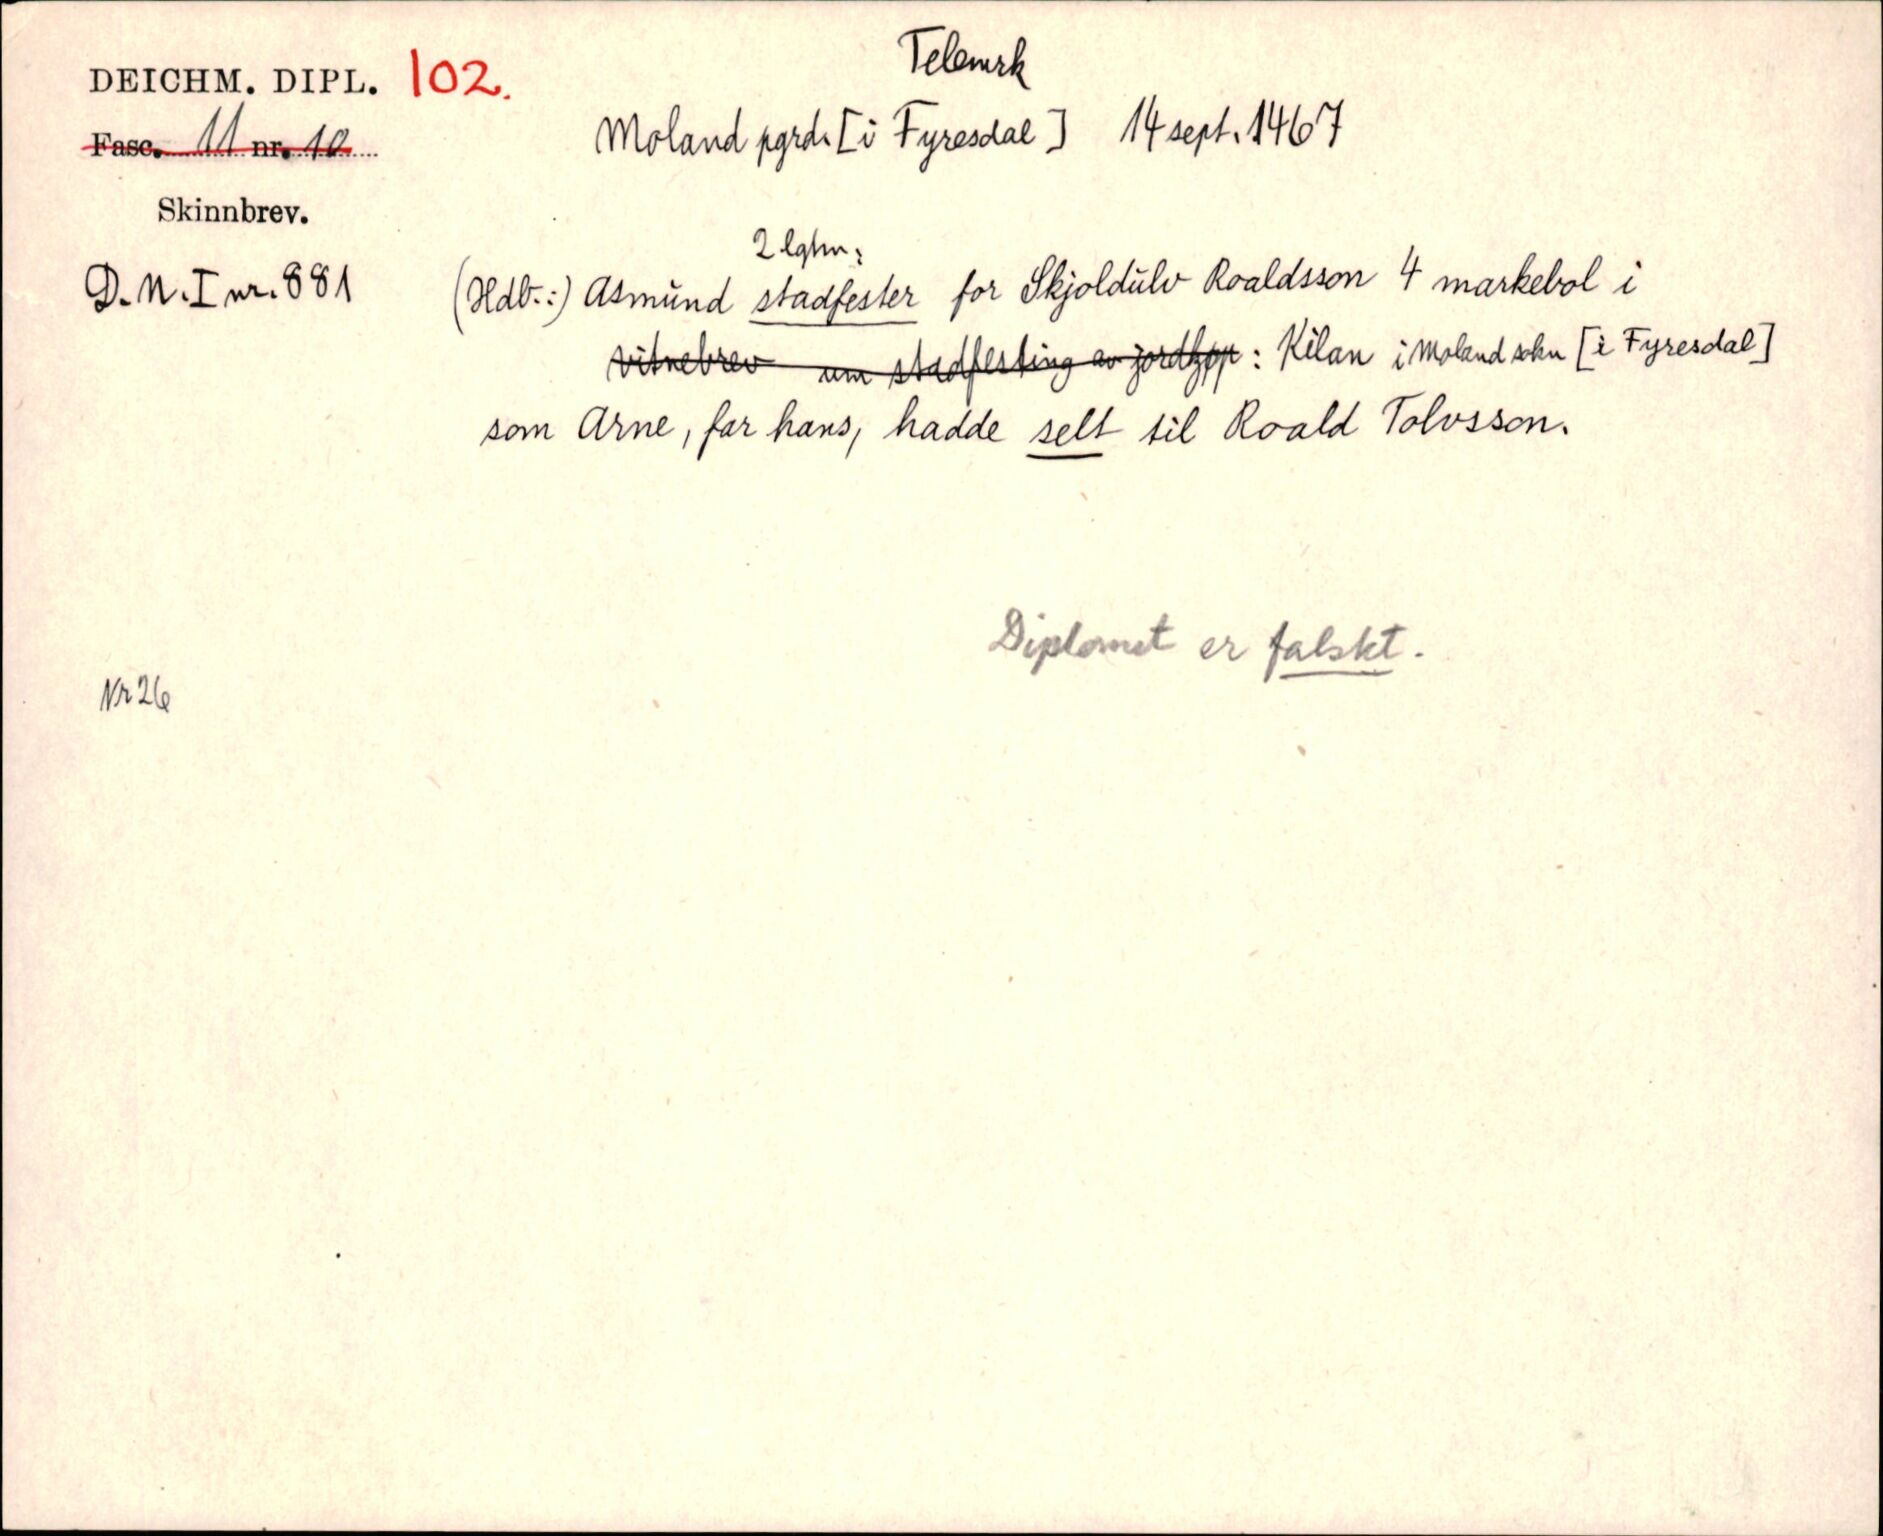 Telemrk
DEICHM. DIPL. 102.
Moland pgrd. [i Fyresdal] 14 sept. 1467
Fasc. 11 nr. 10
Skinnbrev.
2 lgtm:
D. N. I nr. 881
(Hdb.:) Asmund stadfester for Skjoldulv Roaldsson 4 markebol i
vitnebrev um stadfesting av jordkjøp : Kilan i Moland sokn [i Fyresdal]
som Arne, far hans, hadde selt til Roald Tolvsson.
Diplomet er falskt.
Nr 26